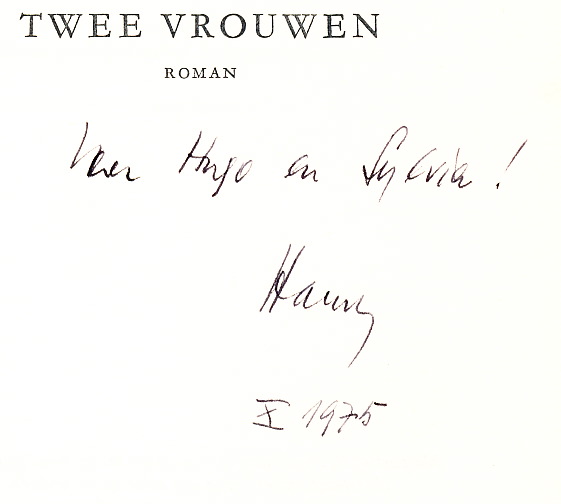 TWEE VROUWEN
ROMAN
Voor Hugo en Sylvia!
Harry
X 1975